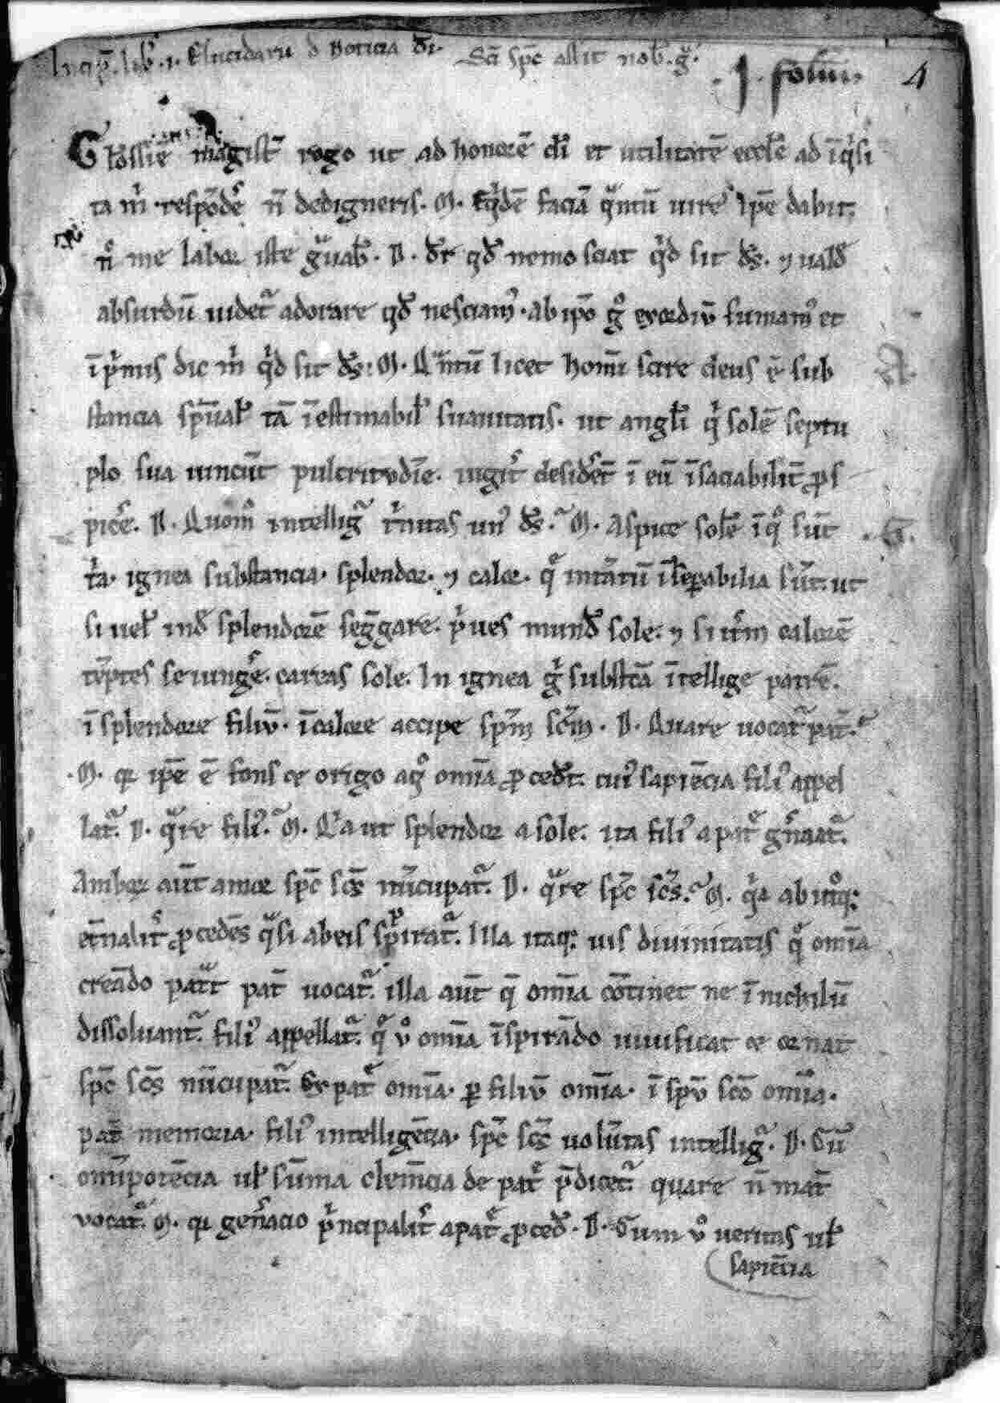 Incip̄. lib̾. i. Elucidarii d̾ Noticia d̄i.
Sc̄i sp̄c assit nob̾. gr̄a.
.I. foliū.
4
Glossie magist̄ rogo ut ad honorē d̄i et utilitatē eccl̄e ad īq̇si
ta ṁ respōdēr n̄ dedigneris. M. Eq̇dē faciā q̄ntū uires ip̄e dabit.
n̊ me labor iste gͣuab̾. D. dr̄ qđ nemo sciat q̇d sit d̄s. ⁊ uald̾
absurdū uidet̄ adorare qđ nesciam᾿. Ab ip̄o g̊ exordiū sumam᾿ et
īṗmis dic ṁ q̇d sit d̄s. M. Qͣntū licet homī scire deus ē sub
stancia sp̄ual̾ tā īestimabil̾ suauitatis. ut angl̄i q̇ solē septu
plo sua uincūt pulcritudīe. iugit̾ desider̄t ī eū īsaciabilit̾ ꝓs
pice̾. D. Quom̊ intelligͣ ṫnitas un᾿ d̄s. M. Aspice solē īq̊ sūt
ṫa. ignea substancia. splendor. ⁊ calor. q̄ intātū īsep̱abilia sūt. ut
si uel̾ ind̾ splendorē seg̱gare. ṗues mund̄ sole. ⁊ si it̾m calorē
tēptes seiunge̾. careas sole. In ignea g̊ substātia ītellige patrē.
ī splendore filiū. ī calore accipe sp̄m sc̄m. D. Quare uocat̾ pat̄.
M. qꝛ ip̄e ē fons ⁊ origo aq̊ omīa ꝓcedūt. cui᾿ sapiēcia fili᾿ appel
lat̾. D. qͣre fili᾿. M. Qͣa ut splendor a sole. ita fili᾿ a pat̾ gn̄at̾.
Amboꝝ aūt amor sp̄c sc̄s nūcupat̾. D. qͣre sp̄c sc̄s. M. q̇a ab utq̊ꝫ
et̾nalit̾ ꝓcedēs qͣsi ab eis spirat̾. Illa itaqꝫ uis diuinitatis q̄ omīa
creādo patͣt pat̄ uocat̾. illa aūt q̄ omīa cōtinet ne ī nichilū
dissoluant̾. fili᾿ appellat̾. q̄ ů omīa īspirādo uiuificat ⁊ ornat
sp̄c sc̄s nūcupat̾. Ex pat̾ omīa. ꝑ filiū omīa. ī sp̄u sc̄o omīa.
pat̄ memoria. fili᾿ intelligēcia. sp̄c sc̄s uolūtas intelligͣ. D. Cū
omīpotēcia ul̾ sūma clemēcia de pat̾ p̄dicet̾ quare n̄ mat̄
uocat̾. M. qꝛ gen̄acio ṗncipalit̾ a pat̾ ꝓced̾. D. Cum ů ueritas ul̾
sapiēcia